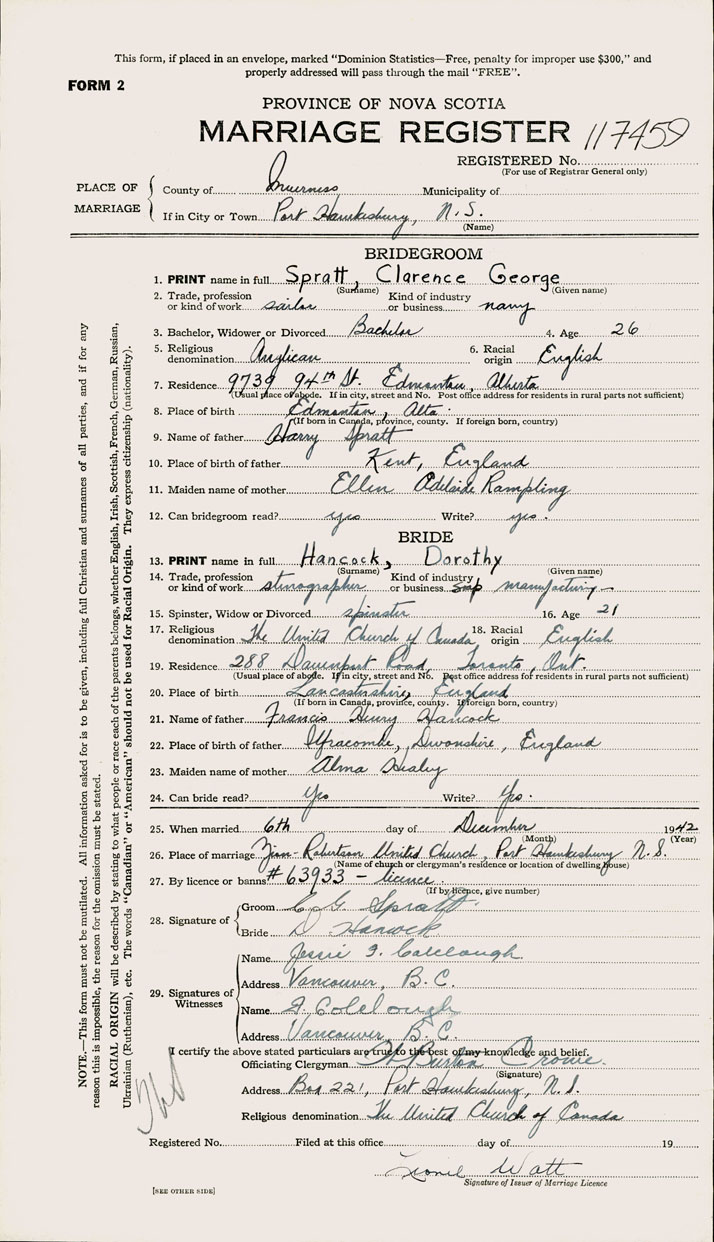 This form, if placed in an envelope, marked "Dominion Statistics—Free, penalty for improper use $300," and
properly addressed will pass through the mail "FREE".
FORM 2
PROVINCE OF NOVA SCOTIA
MARRIAGE REGISTER 117459
REGISTERED No.
(For use of Registrar General only)
PLACE OF MARRIAGE
County of Inverness Municipality of
If in City or Town Port Hawkesbury, N.S.
(Name)
BRIDEGROOM
1. PRINT name in full Spratt, Clarence George
(Surname) (Given name)
2. Trade, profession or kind of work sailor Kind of industry or business navy
3. Bachelor, Widower or Divorced Bachelor 4. Age 26
5. Religious denomination Anglican 6. Racial origin English
7. Residence 9739 94th St. Edmonton, Alberta
(Usual place of abode. If in city, street and No. Post office address for residents in rural parts not sufficient)
8. Place of birth Edmonton, Alta.
(If born in Canada, province, county. If foreign born, country)
9. Name of father Harry Spratt
10. Place of birth of father Kent, England
11. Maiden name of mother Ellen Adelaide Rampling
12. Can bridegroom read? yes Write? yes.
BRIDE
13. PRINT name in full Hancock, Dorothy
(Surname) (Given name)
14. Trade, profession or kind of work stenographer Kind of industry or business manufacturing
15. Spinster, Widow or Divorced spinster 16. Age 21
17. Religious denomination The United Church of Canada 18. Racial origin English
19. Residence 288 Davenport Road, Toronto, Ont.
(Usual place of abode. If in city, street and No. Post office address for residents in rural parts not sufficient)
20. Place of birth Lancastershire, England
(If born in Canada, province, county. If foreign born, country)
21. Name of father Francis Henry Hancock
22. Place of birth of father Ilfracombe, Devonshire, England
23. Maiden name of mother Alma Healey
24. Can bride read? Yes Write? Yes.
25. When married 6th day of December 1942
(Month) (Year)
26. Place of marriage Zion-Robertson United Church, Port Hawkesbury N.S.
(Name of church or clergyman's residence or location of dwelling house)
27. By licence or banns #63933 – licence
(If by licence, give number)
28. Signature of
Groom C. G. Spratt
Bride D. Hancock
29. Signatures of Witnesses
Name Jessie I. Colclough
Address Vancouver, B.C.
Name Colclough
Address Vancouver, B.C.
I certify the above stated particulars are true to the best of my knowledge and belief.
Officiating Clergyman Burton Crowe.
(Signature)
Address Box 221, Port Hawkesbury, N.S.
Religious denomination The United Church of Canada
Registered No. Filed at this office day of 19
Lionel Watt
Signature of Issuer of Marriage Licence
[SEE OTHER SIDE]
NOTE.—This form must not be mutilated. All information asked for is to be given, including full Christian and surnames of all parties, and if for any
reason this is impossible, the reason for the omission must be stated.
RACIAL ORIGIN will be described by stating to what people or race each of the parents belongs, whether English, Irish, Scottish, French, German, Russian,
Ukrainian (Ruthenian), etc. The words "Canadian" or "American" should not be used for Racial Origin. They express citizenship (nationality).